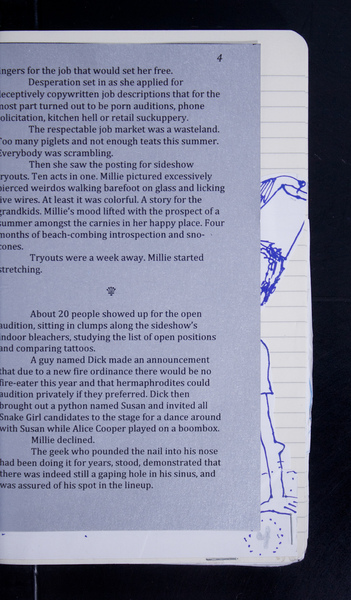 4
ingers for the job that would set her free.
Desperation set in as she applied for
deceptively copywritten job descriptions that for the
most part turned out to be porn auditions, phone
olicitation, kitchen hell or retail suckuppery.
The respectable job market was a wasteland.
Too many piglets and not enough teats this summer.
Everybody was scrambling.
Then she saw the posting for sideshow
ryouts. Ten acts in one. Millie pictured excessively
pierced weirdos walking barefoot on glass and licking
ive wires. At least it was colorful. A story for the
grandkids. Millie's mood lifted with the prospect of a
summer amongst the carnies in her happy place. Four
months of beach-combing introspection and sno-
cones.
Tryouts were a week away. Millie started
stretching.
About 20 people showed up for the open
audition, sitting in clumps along the sideshow's
ndoor bleachers, studying the list of open positions
and comparing tattoos.
A guy named Dick made an announcement
that due to a new fire ordinance there would be no
fire-eater this year and that hermaphrodites could
audition privately if they preferred. Dick then
brought out a python named Susan and invited all
Snake Girl candidates to the stage for a dance around
with Susan while Alice Cooper played on a boombox.
Millie declined.
The geek who pounded the nail into his nose
had been doing it for years, stood, demonstrated that
there was indeed still a gaping hole in his sinus, and
was assured of his spot in the lineup.